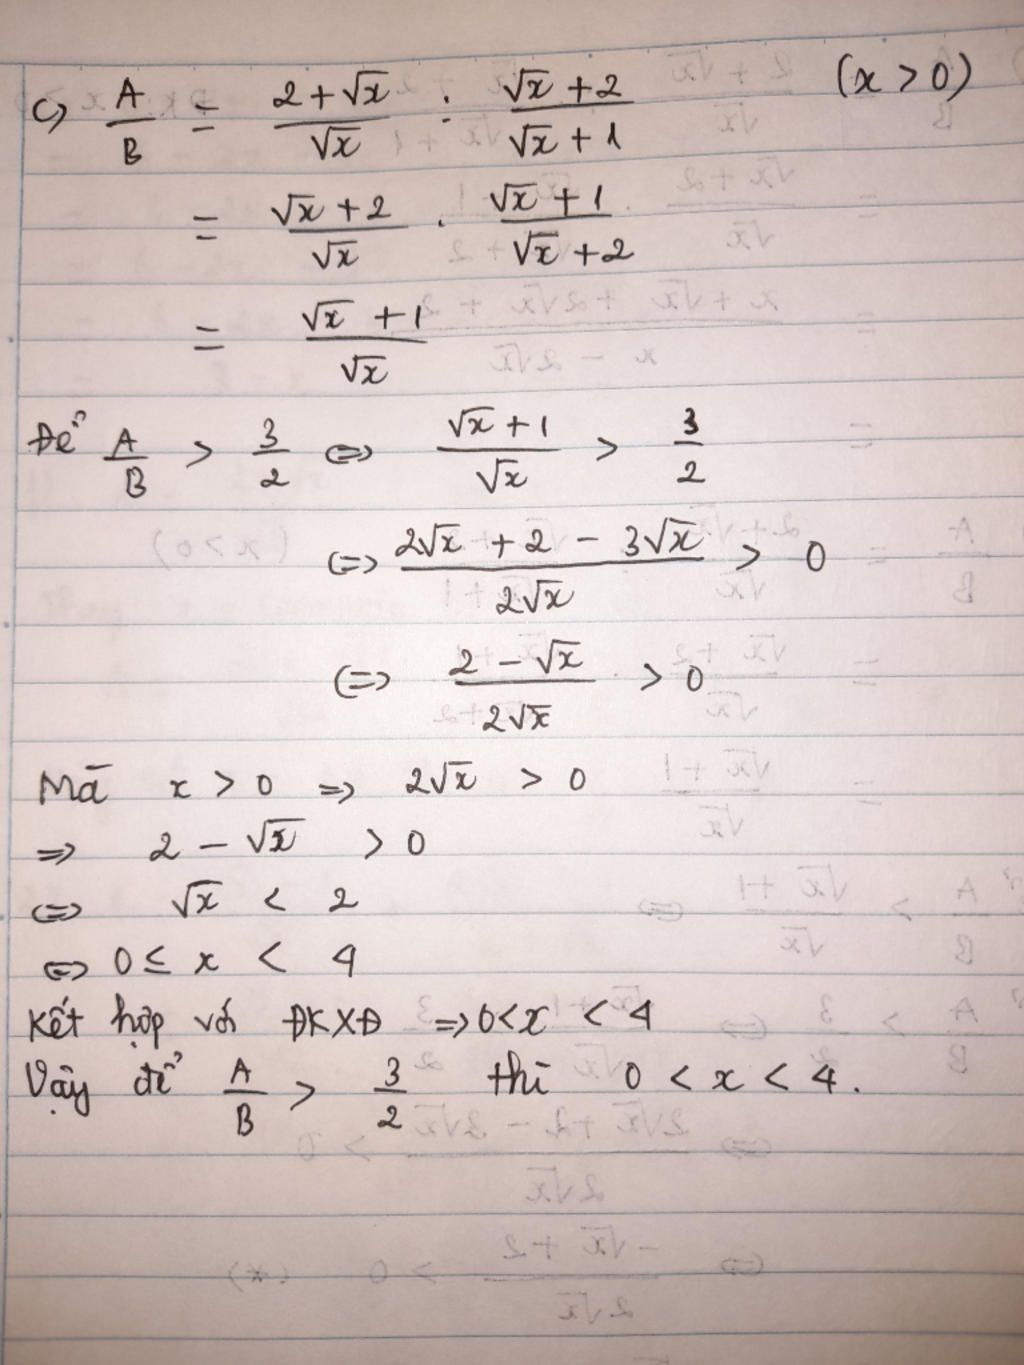 c) A/B = (2 + √x)/√x : (√x + 2)/(√x + 1) (x > 0)
= (√x + 2)/√x . (√x + 1)/(√x + 2)
= (√x + 1)/√x
Để A/B > 3/2 <=> (√x + 1)/√x > 3/2
<=> (2√x + 2 - 3√x)/(2√x) > 0
<=> (2 - √x)/(2√x) > 0
Mà x > 0 => 2√x > 0
=> 2 - √x > 0
<=> √x < 2
<=> 0 ≤ x < 4
Kết hợp với ĐKXĐ => 0 < x < 4
Vậy để A/B > 3/2 thì 0 < x < 4.